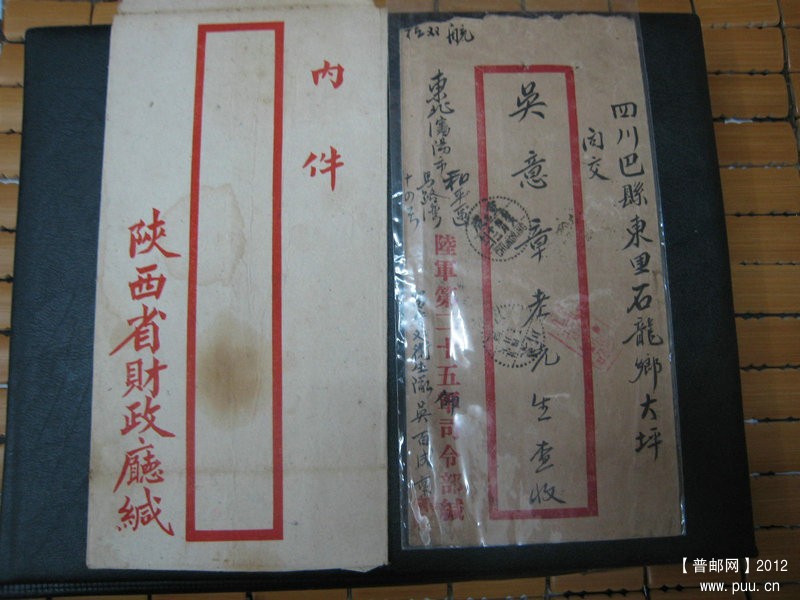 内件
陝西省財政廳緘
航
四川巴縣東里石龍鄉大坪
閣交
吳意章老先生查收
東北瀋陽市
和平區
馬路灣
十四号
陸軍第二十五師司令部緘
【普邮网】2012
www.puu.cn